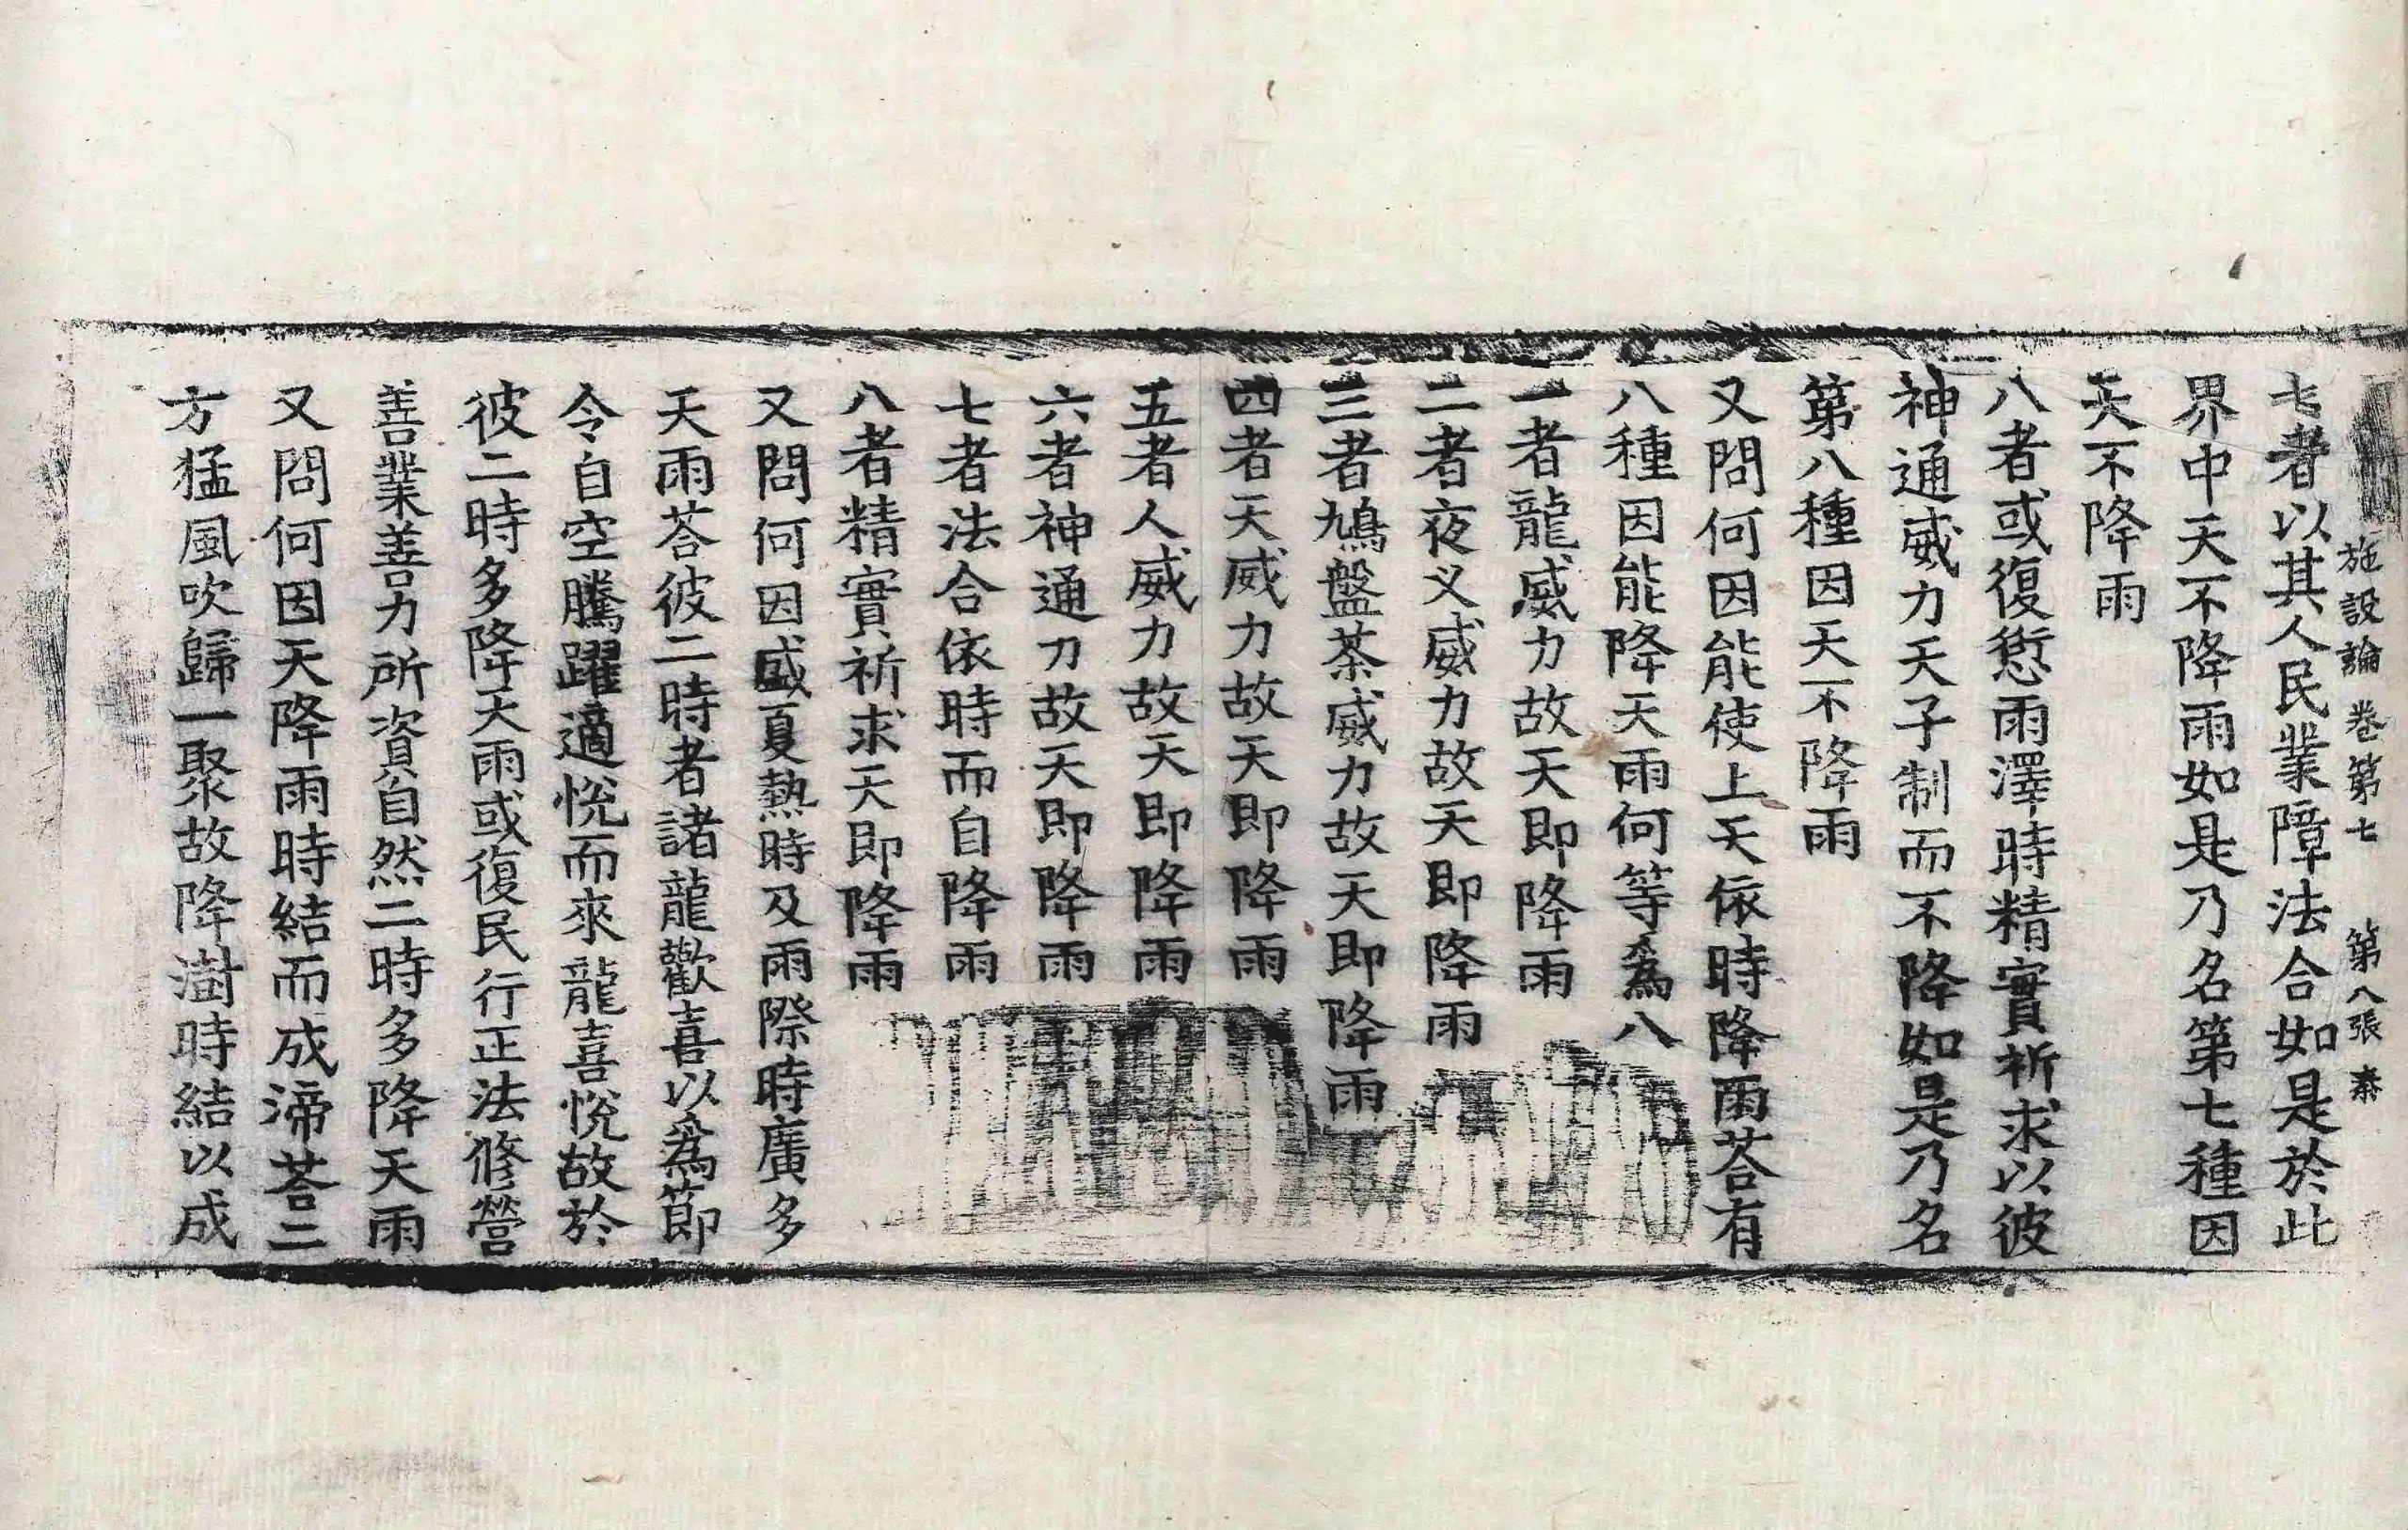 施設論卷第七 第八張 泰
七者以其人民業障法合如是於此
界中天不降雨如是乃名第七種因
天不降雨
八者或復愆雨澤時精實祈求以彼
神通威力天子制而不降如是乃名
第八種因天不降雨
又問何因能使上天依時降雨荅有
八種因能降天雨何等為八
一者龍威力故天即降雨
二者夜义威力故天即降雨
三者鳩盤茶威力故天即降雨
四者天威力故天即降雨
五者人威力故天即降雨
六者神通力故天即降雨
七者法合依時而自降雨
八者精實祈求天即降雨
又問何因盛夏熱時及雨際時廣多
天雨荅彼二時者諸龍歡喜以為節
令自空騰躍適悅而來龍喜悅故於
彼二時多降天雨或復民行正法修營
善業善力所資自然二時多降天雨
又問何因天降雨時結而成渧荅二
方猛風吹歸一聚故降澍時結以成